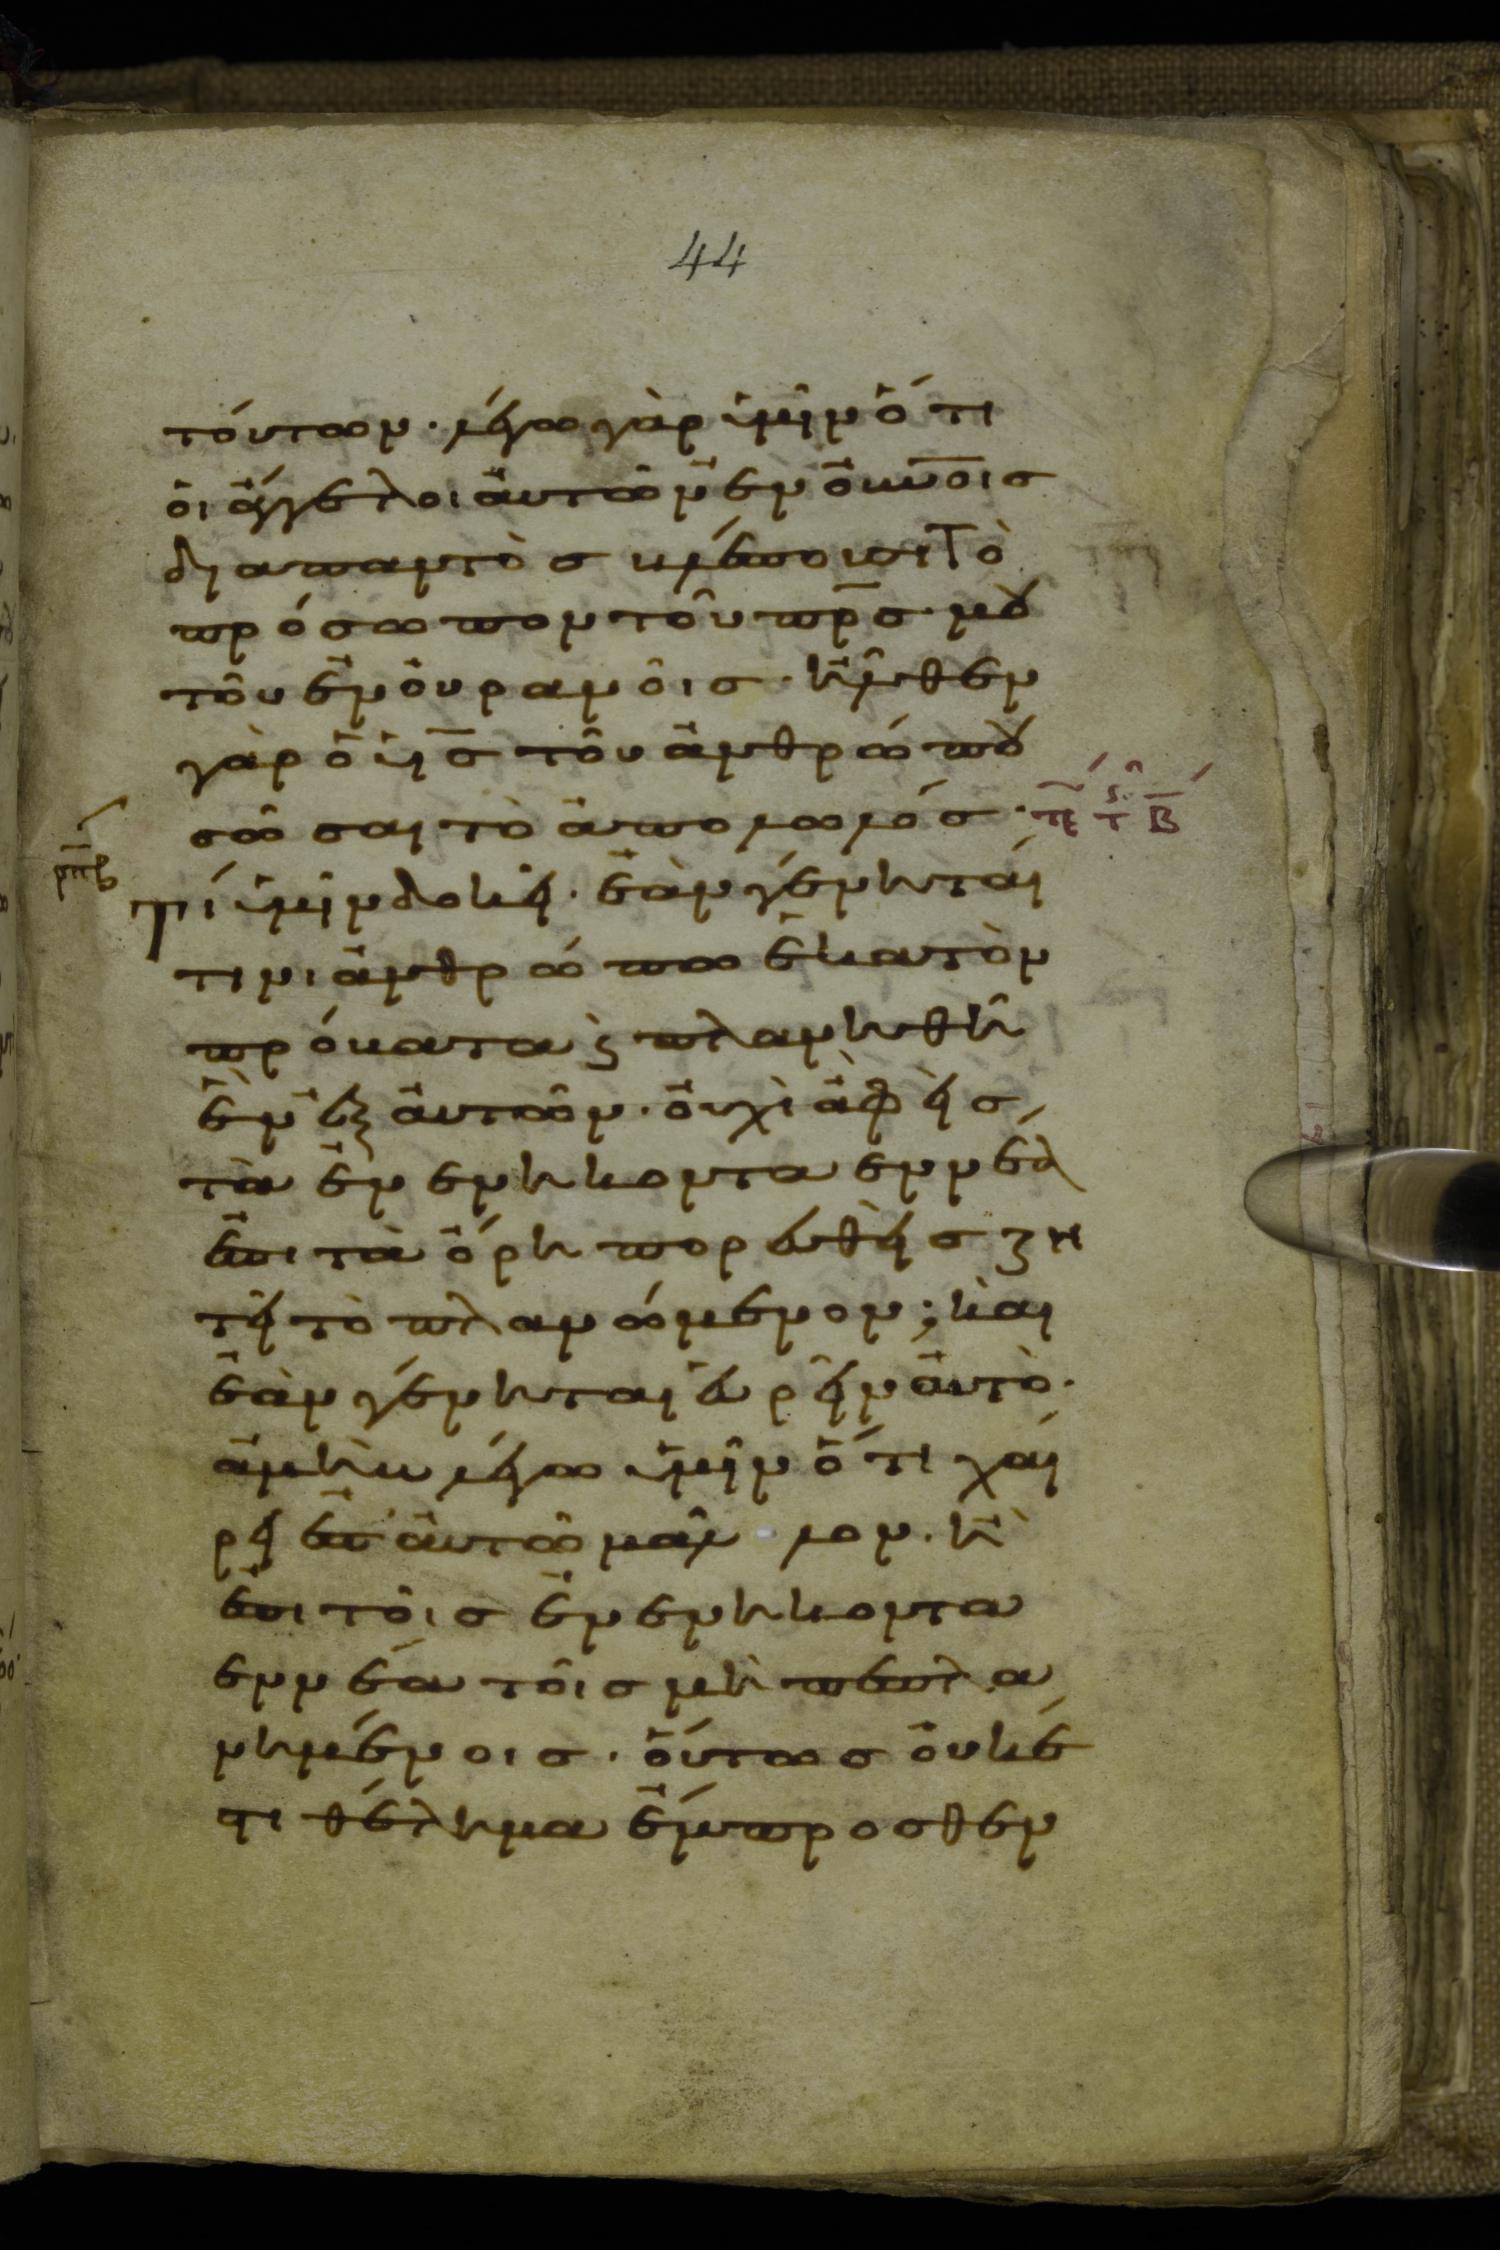 44
τόυτων · λέγω γὰρ ὑμῖν ὅτι
ὁι ἄγγελοι ἀυτῶν ἐν ὀυνοῖς
διαπαντὸς βλέπουσι Τὸ
πρόσωπον τοῦ πρς μου
τοῦ ἐν ὀυρανοῖς · ἦλθεν
γὰρ ὁ ὑς τοῦ ἀνθρώπου
σῶσαι τὸ ἀπολωλός ·
ρπβ
Τί ὑμῖν δοκεῖ · ἐὰν γένηται
τινι ἀνθρώπω ἑκατὸν
πρόβατα ϗ πλανηθῆ
ἓν ἐξ ἀυτῶν · ὀυχὶ ἀφεὶς
τὰ ἐνενηκοντα εννέα
ἐπι τὰ ὄρη πορευθεὶς ζη
τεῖ τὸ πλανώμενον ; και
ἐὰν γένηται ἑυρεῖν ἀυτὸ ·
ἀμὴν λέγω ὑμῖν ὅτι χαί
ρει ἐπ ἀυτῶ μᾶλλον · ἢ
ἐπι τοῖς ἐνενηκοντα
εννέα τοῖς μὴ πεπλα
νημένοις · ὅυτως ὀυκέ
τι θέλημα ἔμπροσθεν